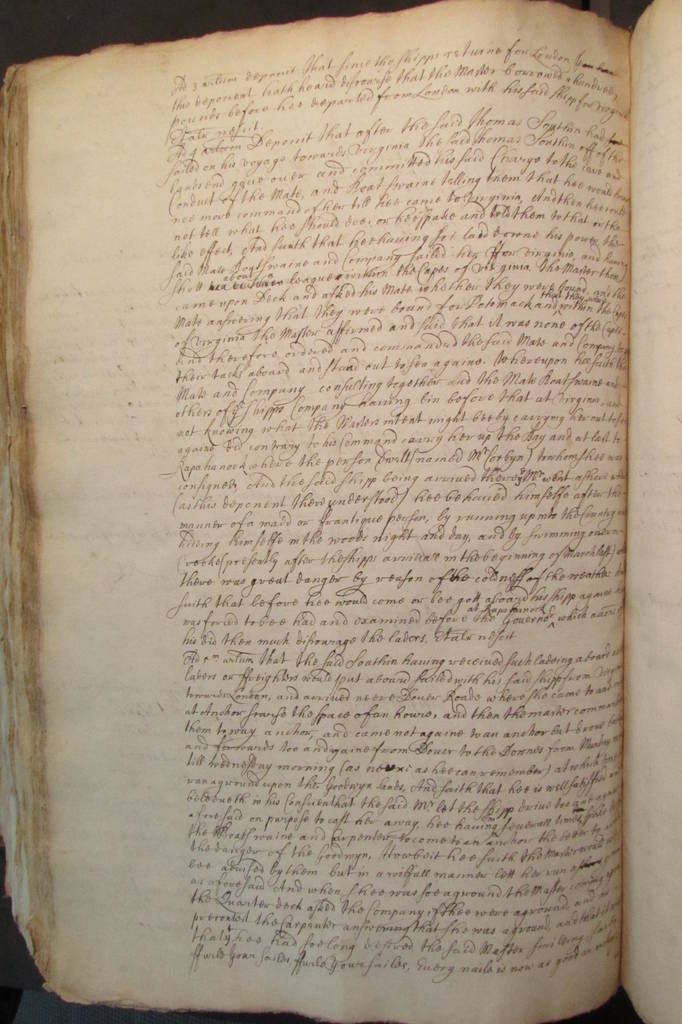 Ad 3 artium deponit That since the shipps returne for London
this deponent hath heard discourse that the Master borrowed a hundred
pounds before hee departed from London with his said shipp for Virginia
Et alr nescit.
Ad 4 artium Deponit that after the said Thomas Southin had
sailed on his voyage towards Virginia the said Thomas Southin off of the
Landsend gave over and committed his said Charge to the care and
Conduct of the Mate, and Boatswaine telling them that hee would
noe more command of her till hee came to Virginia, And then hee could
not tell what hee should doe: or hee spake and told them to that or the
like effect, And saith that hee having soe laid downe his power, the
said Mate Boatswaine and Company sailed her for Virginia, and being
still about leagues within the Capes of Virginia the Master then
came upon Deck and asked his Mate whether they were bound, and the
Mate answering that they were bound for Potomack and that they were within the Capes
of Virginia the Master affirmed and said that it was none of the Capes
And therefore ordered and commanded the said Mate and Company to
their tacks aboard and stand out to sea againe. Whereupon hee saith the
Mate and Company consulting together and the Mate Boatswaine and
others of the shipps Company having bin before that at Virginia, and
not knowing what the Masters intent might bee by carrying her out to sea
againe did contrary to his Command carry her up the Bay and at last to
Rapahanock where the person dwelt (named Mr Corbyn) to whom shee was
consigned, And the said shipp being arrived there the Mr went ashore where
(as this deponent there understood) hee behaved himselfe after the
manner of a madd or frantique person, by running up into the Country and
hideing himselfe in the woods night and day, and by swimming over a
Creeke (presently after the shipps arrivall in the beginning of March last)
there was great danger by reason of the coldness of the weather
saith that before hee would come or bee gott aboard his shipp againe hee
was forced to bee had and examined before the Governor at Rapahanock which
his did then much discourage the laders, Et alr nescit
Ad 5um artium That the said Southin having received such ladeing aboard
laders or ffreighters would put aboard sailed with his said shipp from Virginia
towards London, and arrived neere Dover Roade where she came to and
at Anchor scarse the space of an houre, and then the master commanded
them to way anchor, and came not againe to an anchor but drove
and forwards too and againe from Dover to the Downes from Munday
till wednesday morning (as neere as hee can remember) at which
ran aground upon the Goodwyn sands, And saith that hee is well satisfied and
beleeveth in his Conscience that the said Mr let the shipp drive too and againe
aforesaid on purpose to cast her away, hee having severall times
the Boatswaine and Carpenter, to come to an anchor the better to
the danger of the Goodwyn, Howbeit hee saith the Master would not
bee advised by them but in a willfull manner lett her run
as aforesaid And when shee was soe aground the Master coming
the Quarter deck asked the Company if shee were aground, and
presently the Carpenter answering that she was aground, and that
that hee had soe long desired, the said Master smileing said
ffurle Your sailes, ffurle Your sailes, Every naile is now as good an anchor